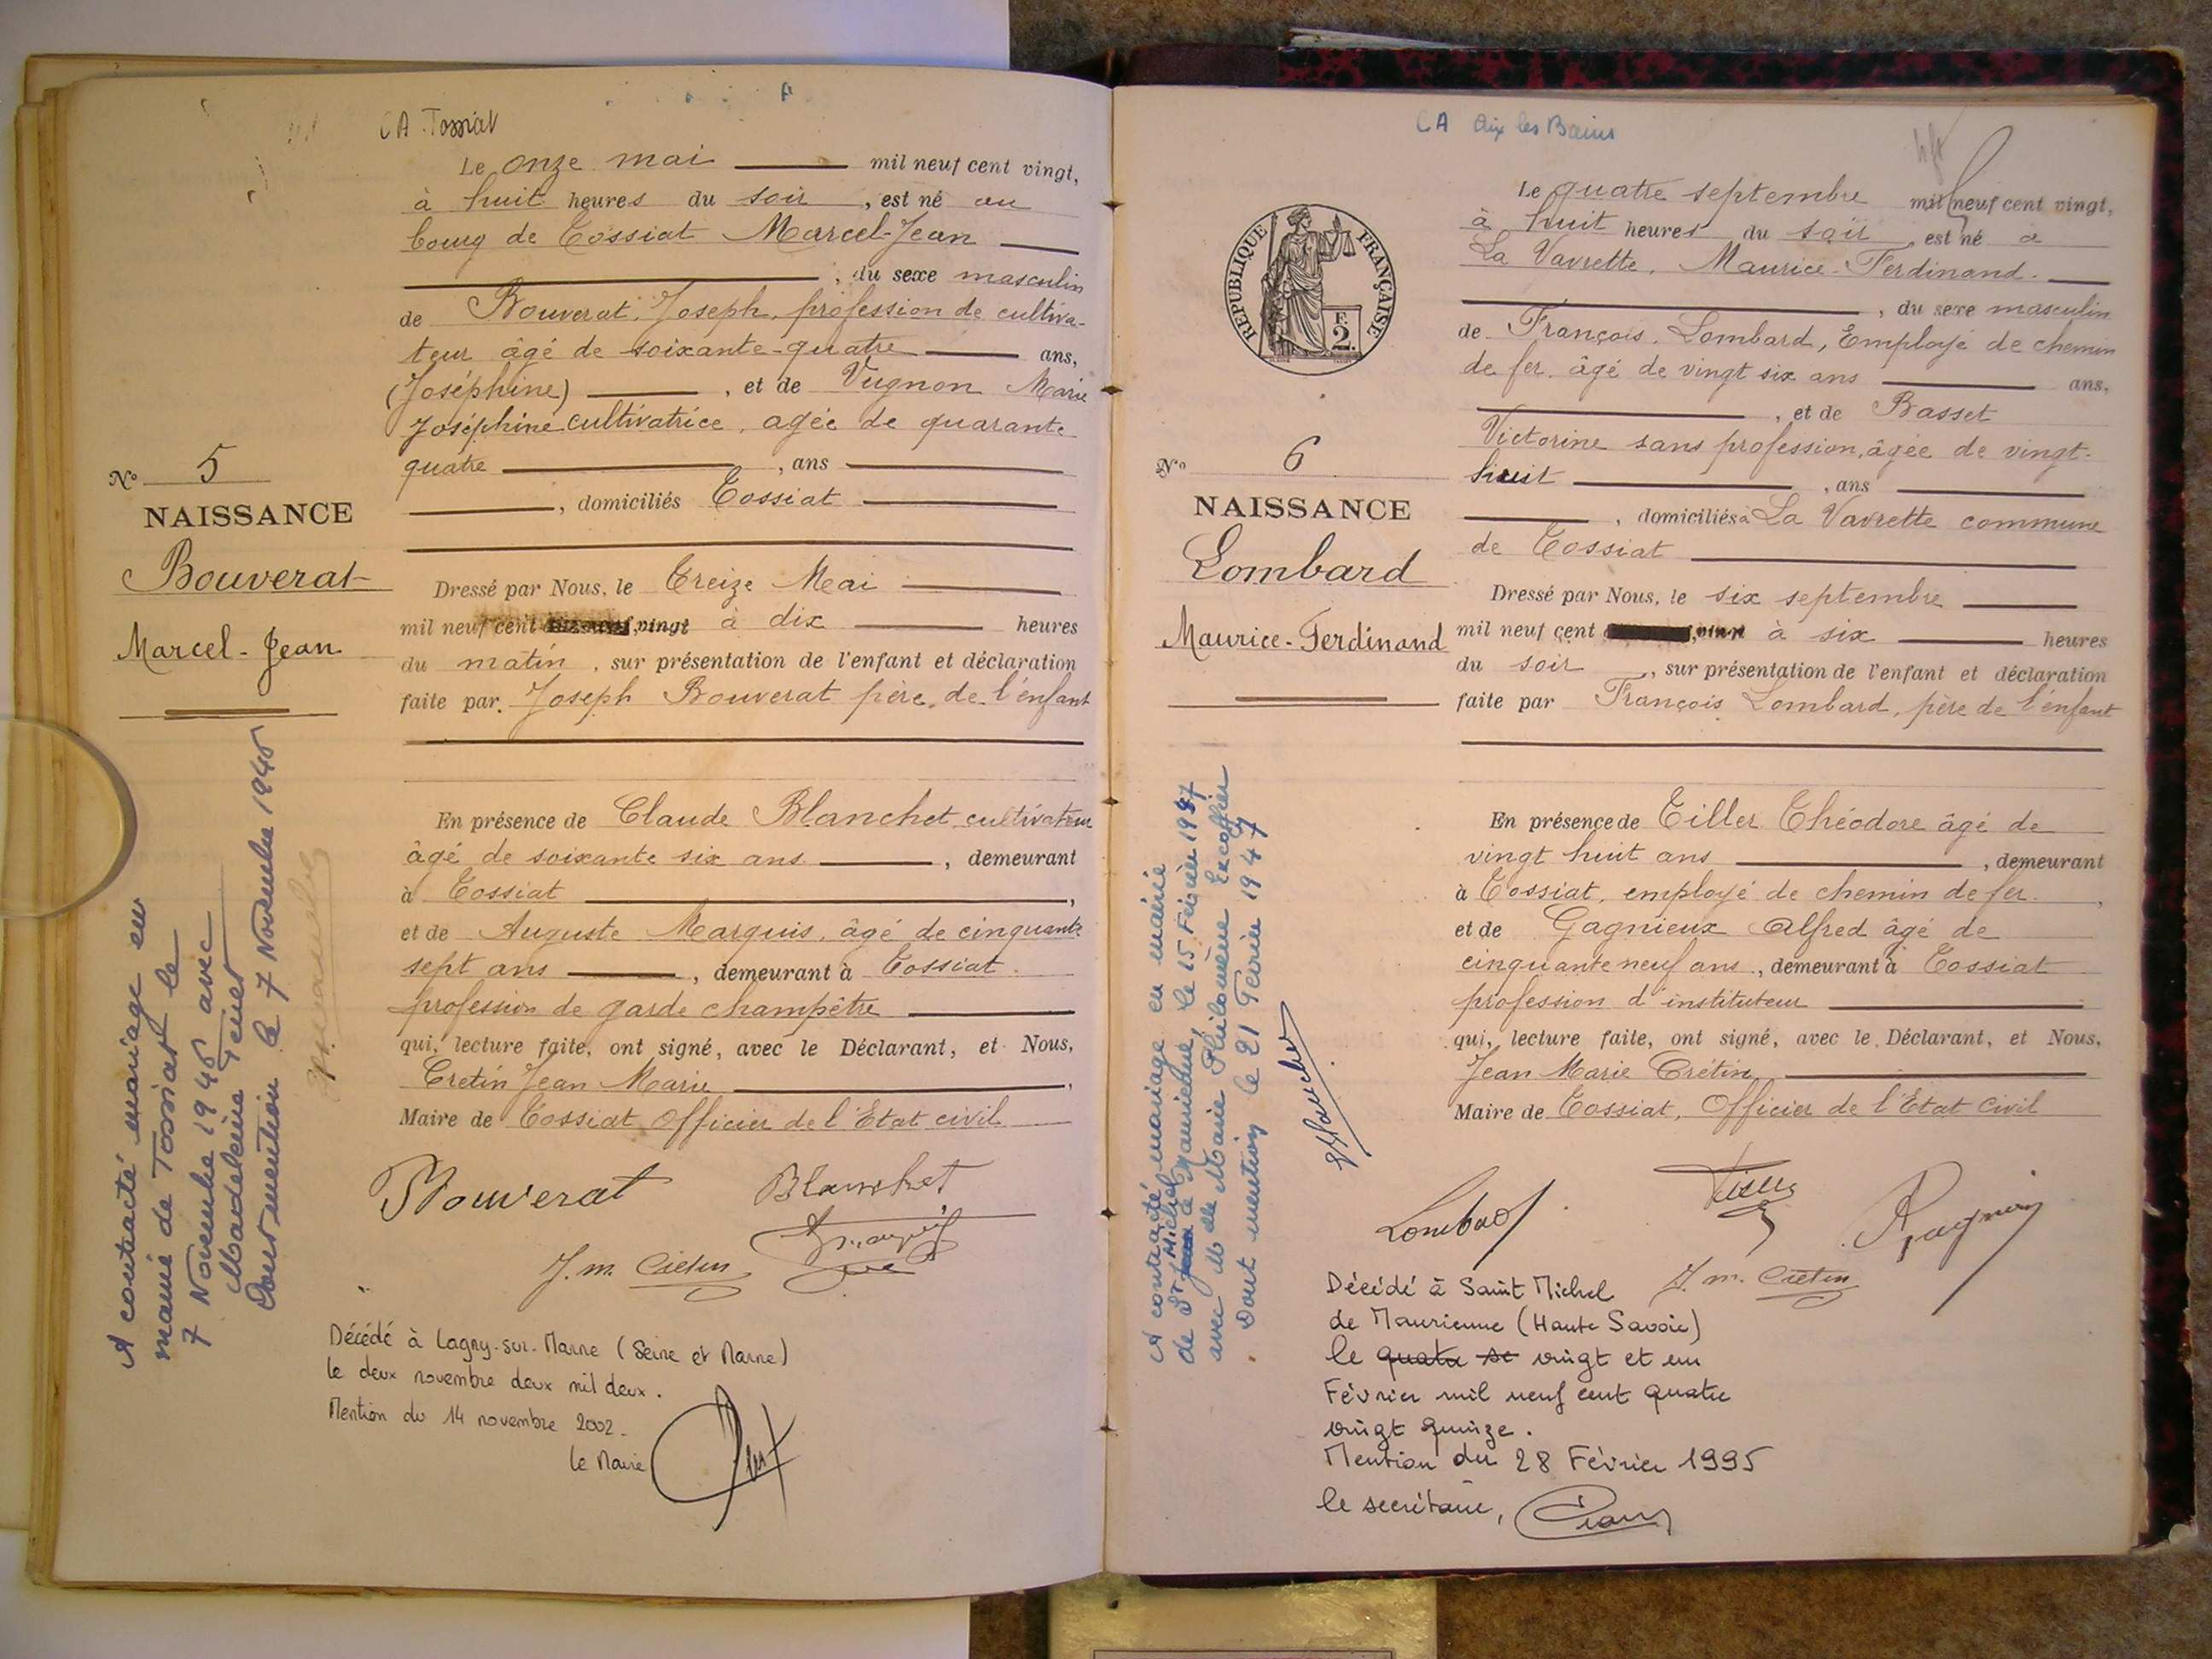 CA Tossiat
Le onze mai mil neuf cent vingt,
à huit heures du soir, est né au
bourg de Tossiat Marcel-Jean
, du sexe masculin
de Bouverat, Joseph, profession de cultiva-
teur âgé de soixante-quatre ans,
(Joséphine), et de Vugnon Marie
Joséphine cultivatrice, agée de quarante
quatre, ans
, domiciliés Tossiat
No 5
NAISSANCE
Bouverat
Marcel-Jean
Dressé par Nous, le Treize Mai
mil neuf cent vingt à dix heures
du matin, sur présentation de l'enfant et déclaration
faite par Joseph Bouverat père de l'enfant
En présence de Claude Blanchet cultivateur
âgé de soixante six ans, demeurant
à Tossiat,
et de Auguste Marquis, âgé de cinquante
sept ans, demeurant à Tossiat
profession de garde champêtre
qui, lecture faite, ont signé, avec le Déclarant, et Nous,
Cretin Jean Marie,
Maire de Tossiat Officier de l'Etat civil
Bouverat Blanchet
J. m. Crétin
A contracté mariage en
mairie de Tossiat le
7 Novembre 1945 avec
Madeleine Tenet
Dont mention le 7 Novembre 1945
Décédé à Lagny-sur-Marne (Seine et Marne)
le deux novembre deux mil deux.
Mention du 14 novembre 2002.
le Maire
CA Aix les Bains
RÉPUBLIQUE FRANÇAISE
F. 2.
Le quatre septembre mil neuf cent vingt,
à huit heures du soir, est né a
La Vavrette, Maurice-Ferdinand.
, du sexe masculin
de François, Lombard, Employé de chemin
de fer. âgé de vingt six ans ans,
, et de Basset
Victorine sans profession, âgée de vingt-
huit, ans
, domiciliés à La Vavrette commune
de Tossiat
No 6
NAISSANCE
Lombard
Maurice-Ferdinand
Dressé par Nous, le six septembre
mil neuf cent vingt à six heures
du soir, sur présentation de l'enfant et déclaration
faite par François Lombard, père de l'enfant
En présence de Tiller Théodore âgé de
vingt huit ans, demeurant
à Tossiat, employé de chemin de fer.,
et de Gagnieux Alfred âgé de
cinquante neuf ans, demeurant à Tossiat
profession d'instituteur
qui, lecture faite, ont signé, avec le Déclarant, et Nous,
Jean Marie Crétin
Maire de Tossiat, Officier de l'Etat Civil
Lombard
J. m. Crétin
A contracté mariage en mairie
de St Michel de Maurienne, le 15 Février 1947
avec Melle Marie Philomène Excoffier
Dont mention le 21 Février 1947
Décédé à Saint Michel
de Maurienne (Haute Savoie)
le quatre se vingt et un
Février mil neuf cent quatre
vingt quinze.
Mention du 28 Février 1995
le secrétaire,